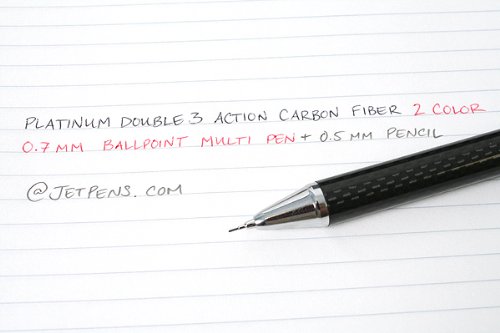 PLATINUM DOUBLE 3 ACTION CARBON FIBER 2 COLOR
0.7 MM BALLPOINT MULTI PEN + 0.5 MM PENCIL
@JETPENS.COM